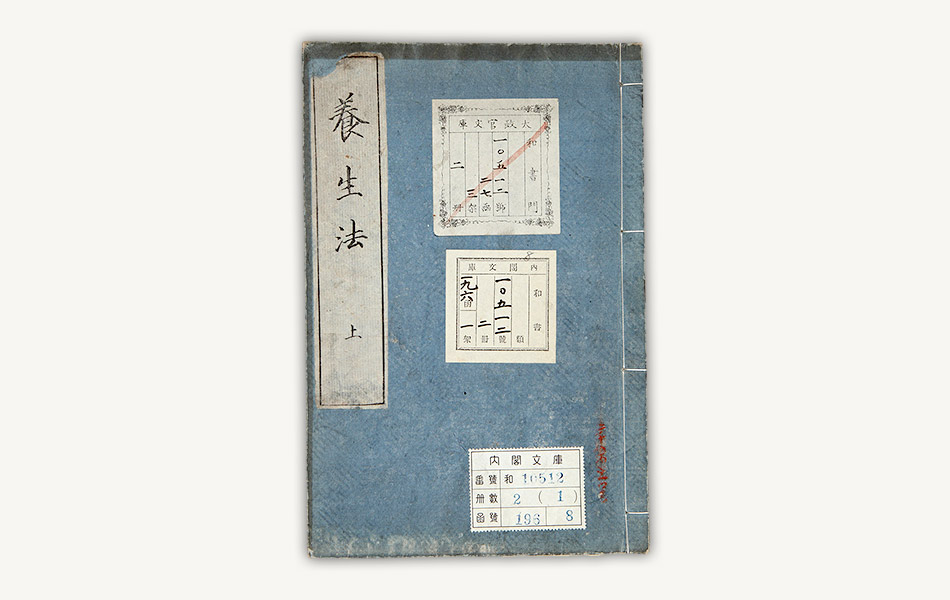 養生法
上
庫文官政大
和書門
一〇五一二號
二七函
三架
二冊
庫文閣内
和書類
一〇五一二號
二冊
一九六函
一架
8
内閣文庫
番號 和 10512
冊數 2 ( 1 )
函號 196 8